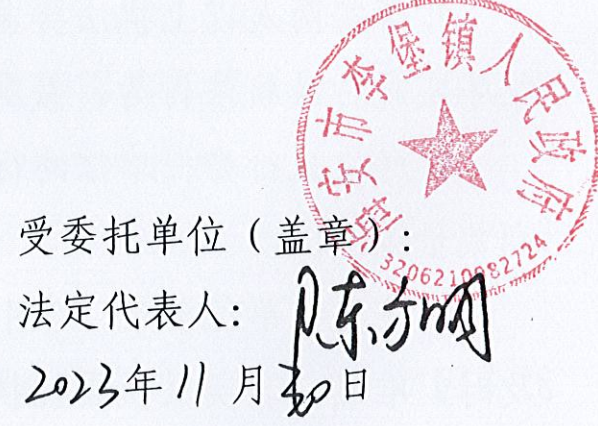 海安市李堡镇人民政府
3206210982724
受委托单位（盖章）：
法定代表人：陈方明
2023年11月30日